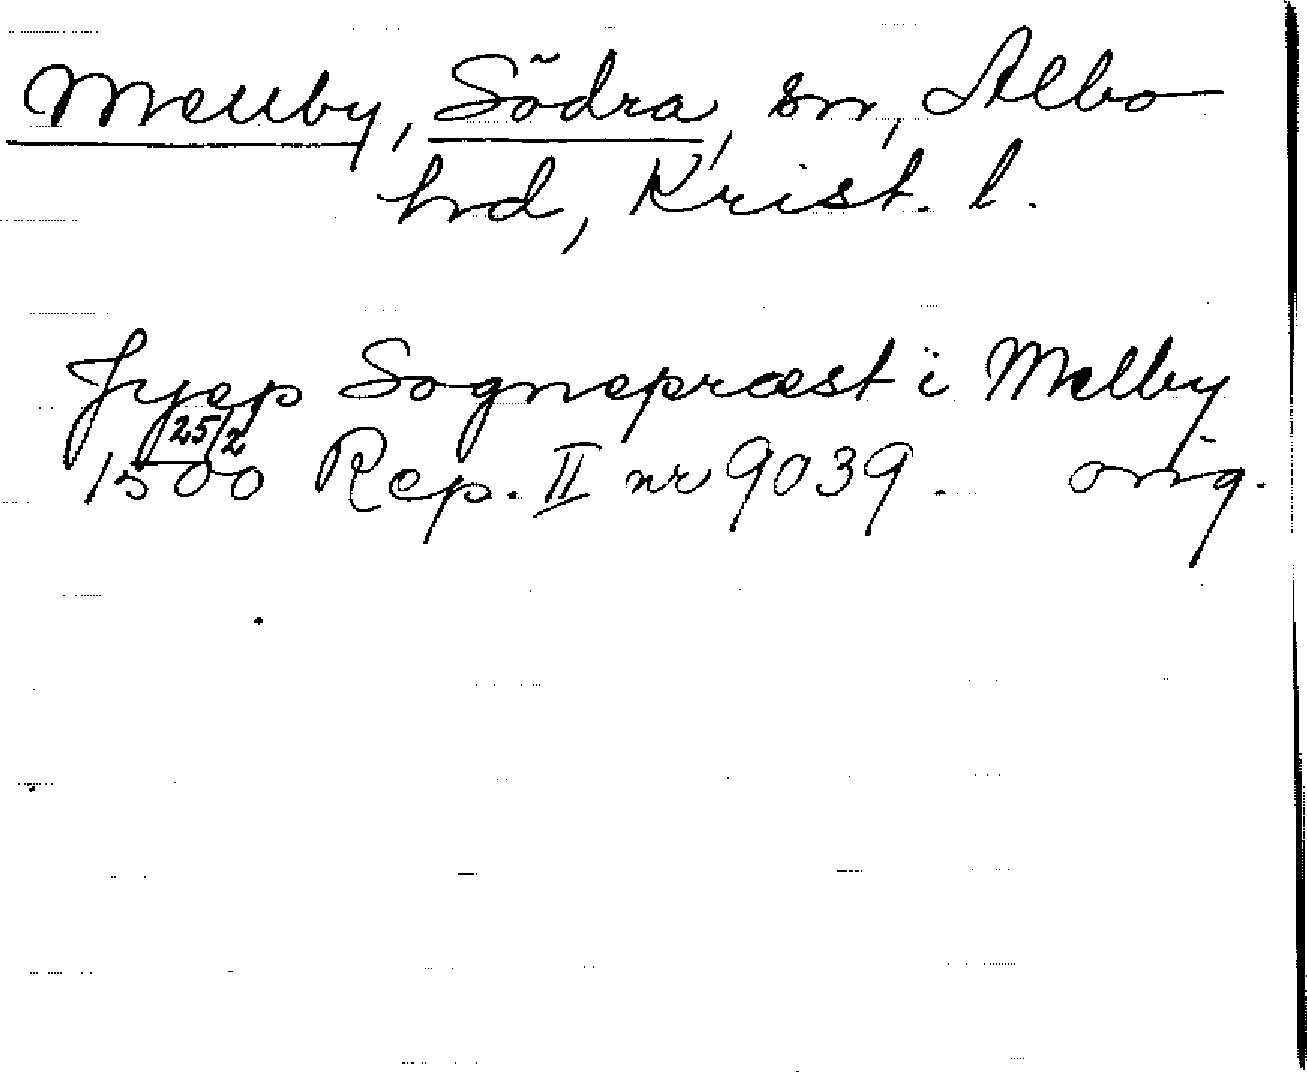 Mellby, Södra, sn, Albo
hd, Krist. l.
Jyep Sognepræst i Melby
25/2
1500 Rep. II nr 9039. orig.